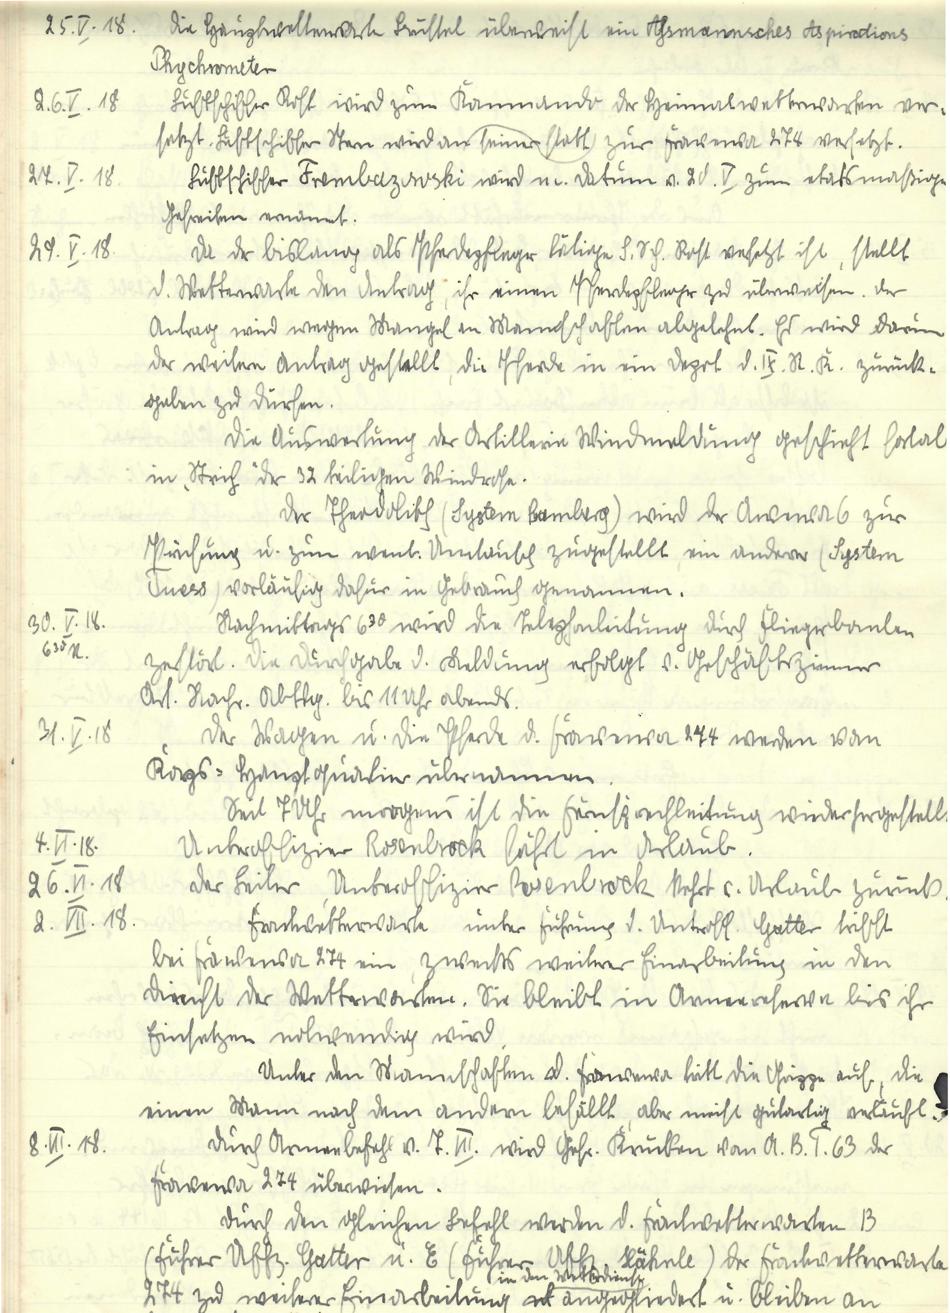 25.V.18. Die Hauptwetterwarte überweist ein Assmannsches Aspirations
Phychrometer
26.V.18 Luftschiffer Rost wird zum Kommando der Heimatwetterwarten ver-
setzt. Luftschiffer Stern wird an seiner statt zur Frawewa 274 versetzt.
27.V.18. Luftschiffer wird m. Datum v. 20.V zum etatsmäßige
Gefreiten ernannt.
29.V.18. Da der bislang als Pferdepfleger tätige L. Sch. Rost versetzt ist, stellt
d. Wetterwarte den Antrag, ihr einen Pferdepfleger zu überweisen. Der
Antrag wird wegen Mangel an Mannschaften abgelehnt. Es wird darum
der weitere Antrag gestellt, die Pferde in ein Depot d. IX. R. K. zurück-
geben zu dürfen.
Die Auswertung der Artillerie Windmeldung geschieht
in "Strich" der 32 teiligen Windrose.
Der Theodolith (System Bamberg) wird der Awewa 6 zur
Prüfung u. zum event. Umtausch zugestellt, ein anderer (System
Tness) vorläufig dafür in Gebrauch genommen.
30.V.18. Nachmittags 6³⁰ wird die Telephonleitung durch Fliegerbomben
6³⁰ N. zerstört. Die Durchgabe d. Meldung erfolgt v. Geschäftszimmer
Art. Nachr. Abtlg. bis 11 Uhr abends.
31.V.18 Der Wagen u. die Pferde d. Frawewa 274 werden vom
Korps-Hauptquartier übernommen.
Seit 7 Uhr morgens ist die Fernsprechleitung wiederhergestellt
4.VI.18. Unteroffizier Rosenbrock fährt in Urlaub.
26.VI.18 Der Leiter, Unteroffizier Rosenbrock kehrt v. Urlaub zurück.
2.VII.18. Frontwetterwarte unter Führung d. Untroff. Gatter trifft
bei Frawewa 274 ein, zwecks weiterer Einarbeitung in den
Dienst der Wetterwarten. Sie bleibt in Armeereserve bis ihr
Einsetzen notwendig wird.
Unter den Mannschaften d. Frawewa tritt die Grippe auf, die
einen Mann nach dem andern befällt, aber meist gutartig verläuft.
8.VII.18. Durch Armeebefehl v. 7.VII. wird Gefr. Krucken vom A.B.T. 63 der
Frawewa 274 überwiesen.
Durch den gleichen Befehl werden d. Frontwetterwarten B
(Führer Uffz. Gatter u. E (Führer Uffz. ) der Frontwetterwarte
in den Wetterdienst
274 zu weiterer Einarbeitung angegliedert u. bleiben an